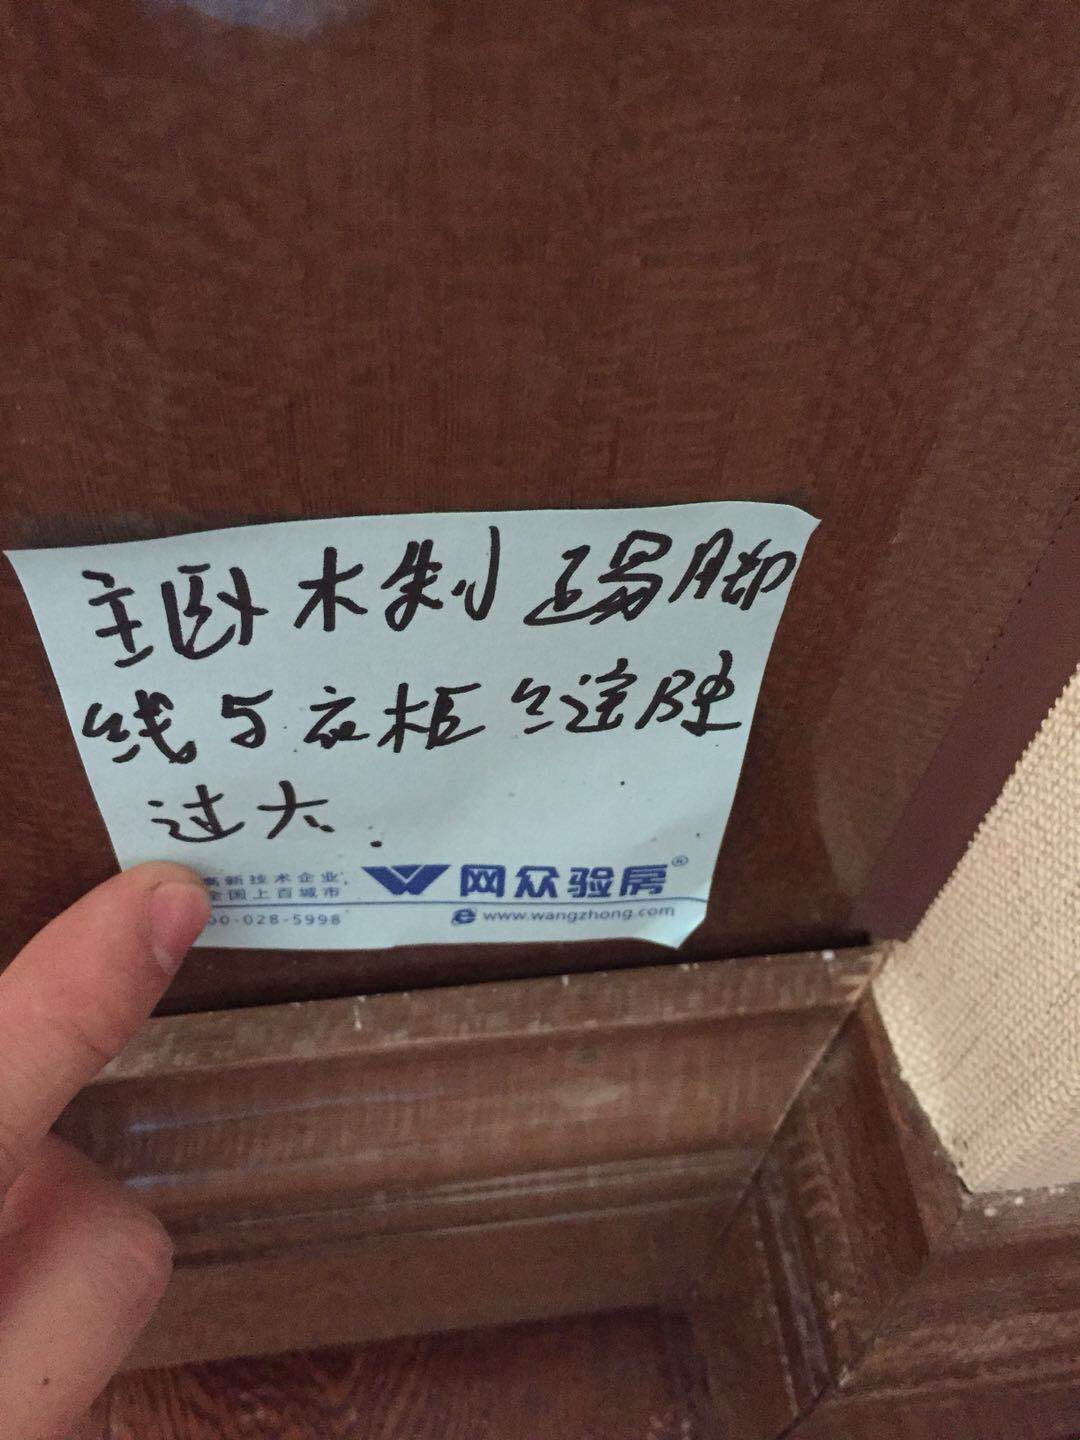 主卧木制踢脚
线与衣柜缝隙
过大.
高新技术企业,
全国上百城市
00-028-5998
网众验房®
www.wangzhong.com